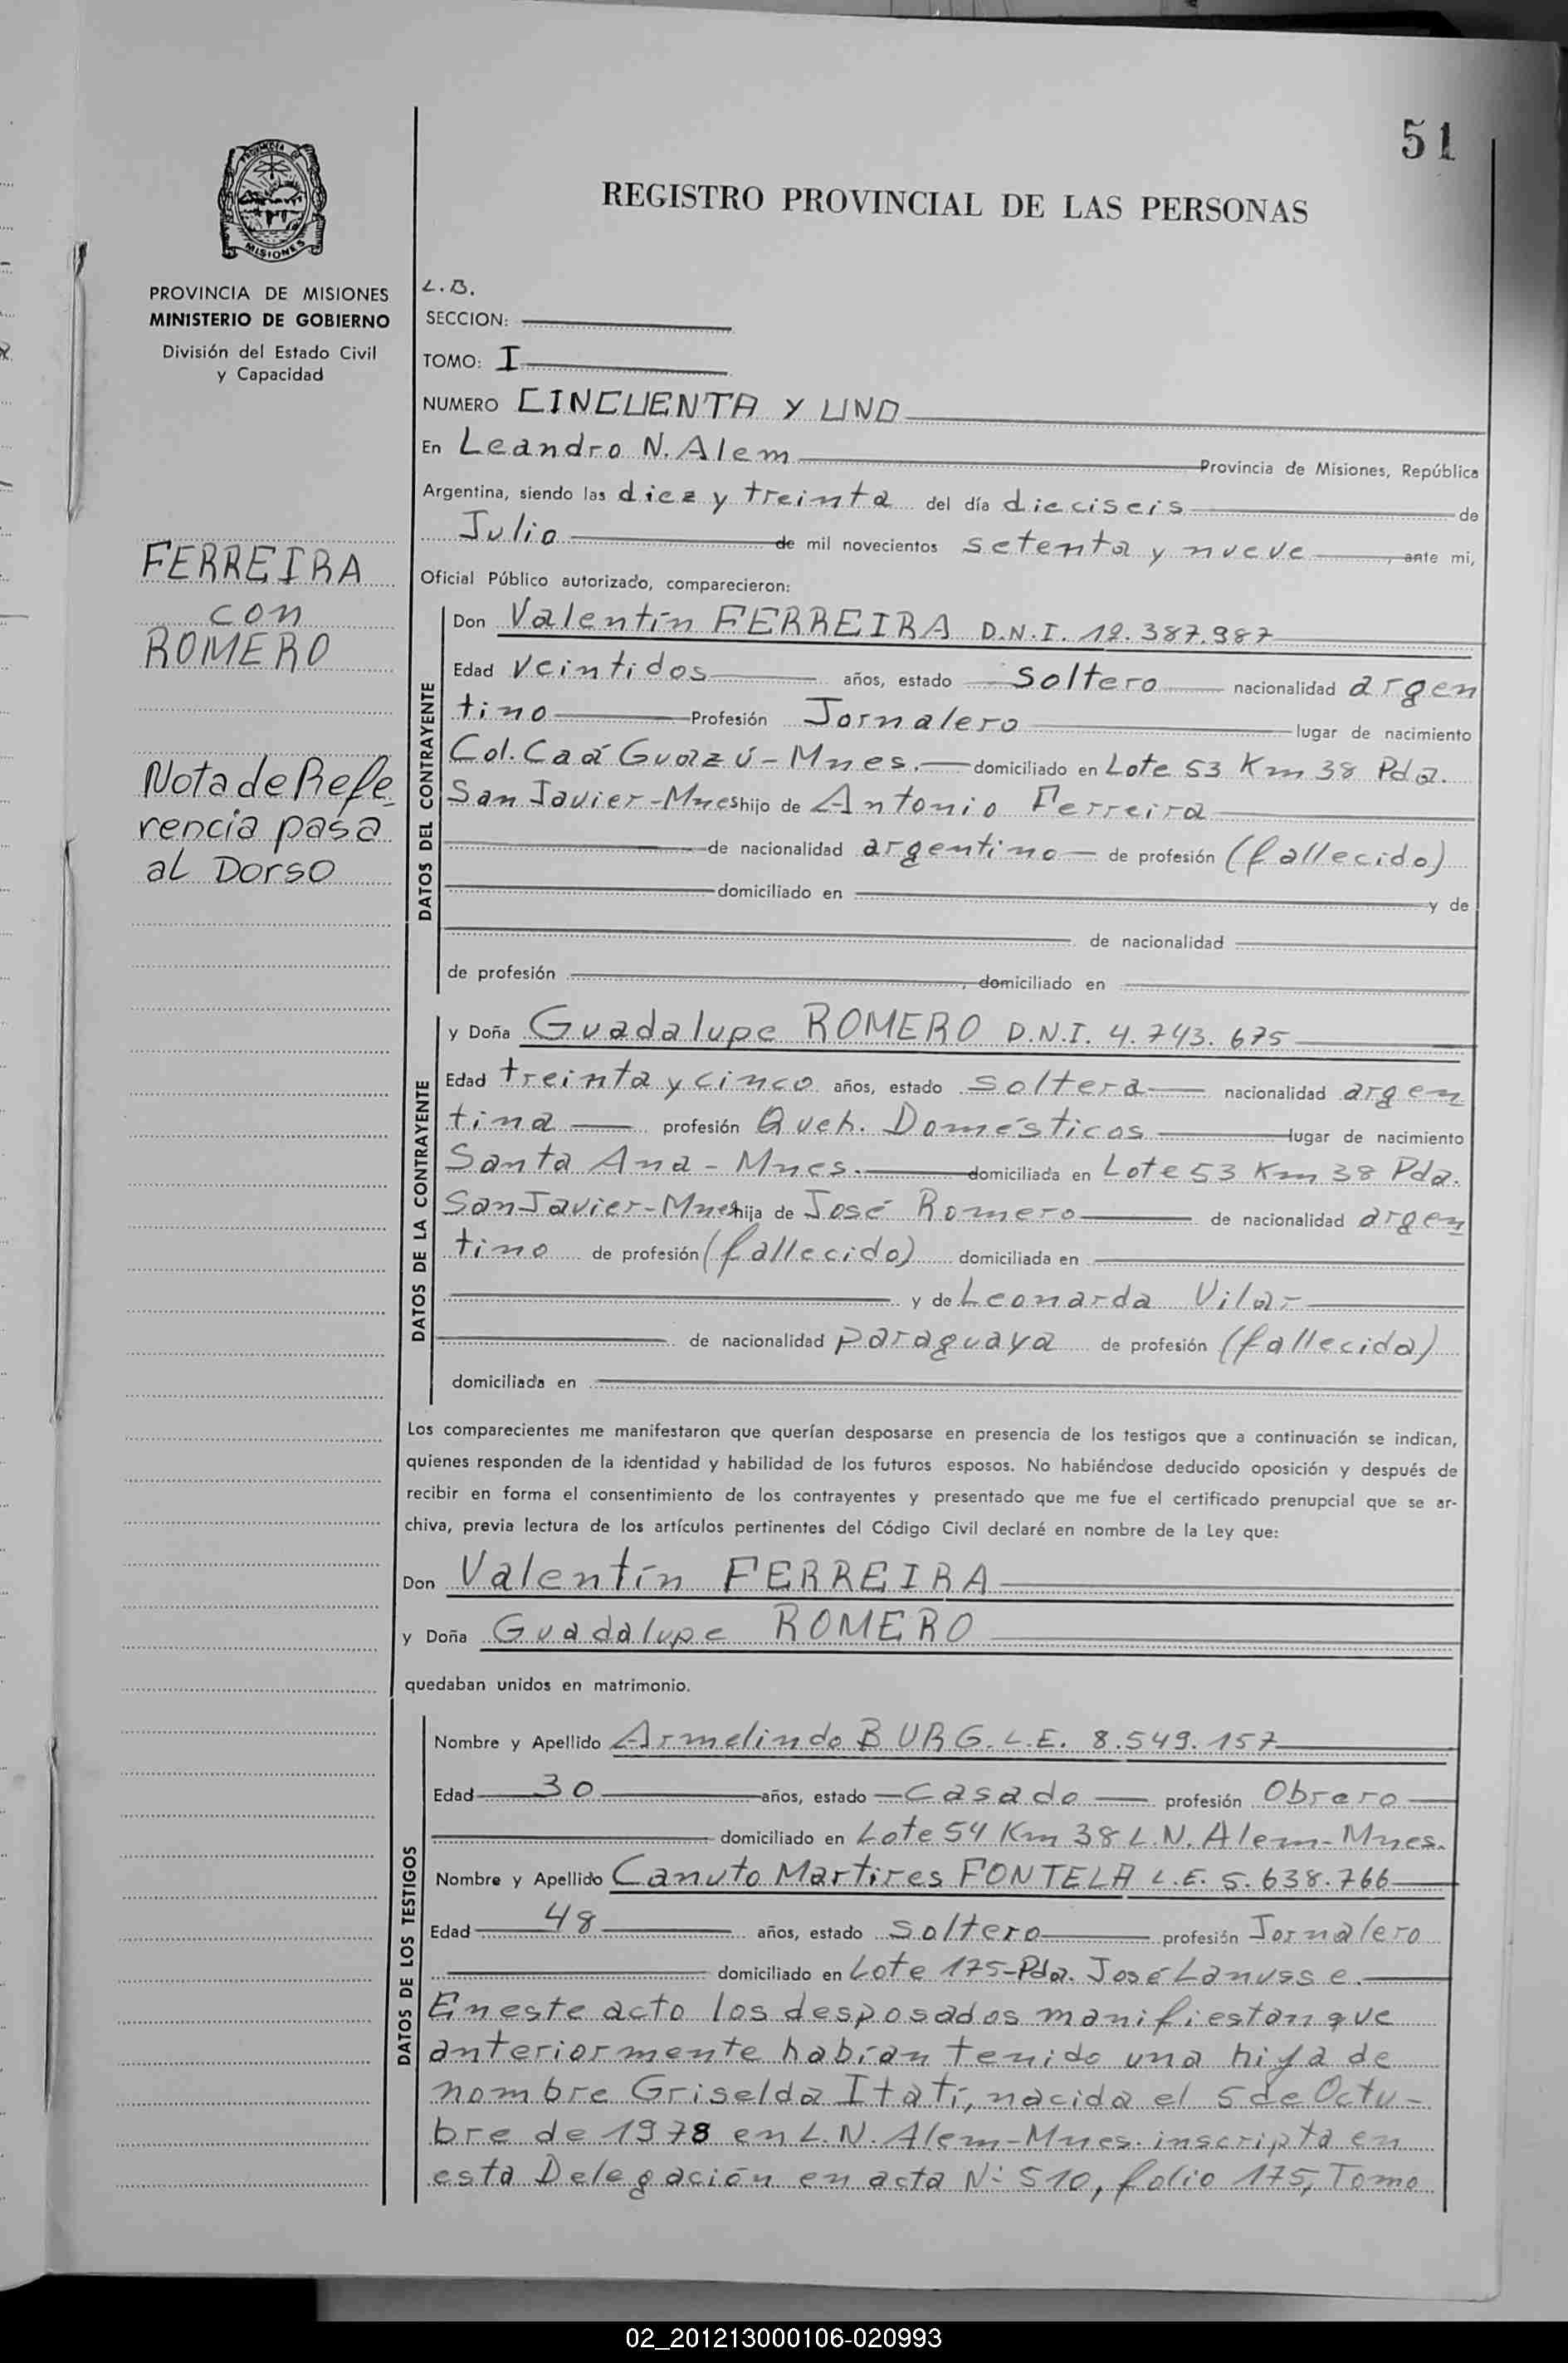 51
REGISTRO PROVINCIAL DE LAS PERSONAS
PROVINCIA DE MISIONES
MINISTERIO DE GOBIERNO
División del Estado Civil
y Capacidad
L.B.
SECCION:
TOMO: I
NUMERO CINCUENTA Y UNO
En Leandro N. Alem Provincia de Misiones, República
Argentina, siendo las diez y treinta del día dieciseis de
Julio de mil novecientos setenta y nueve, ante mi,
Oficial Público autorizado, comparecieron:
FERREIRA
con
ROMERO
Nota de Refe-
rencia pasa
al Dorso
DATOS DEL CONTRAYENTE
Don Valentín FERREIRA D.N.I. 12.387.987
Edad veintidos años, estado soltero nacionalidad argen
tino Profesión Jornalero lugar de nacimiento
Col. Caá Guazú-Mnes. domiciliado en Lote 53 Km 38 Pda.
San Javier-Mnes hijo de Antonio Ferreira
de nacionalidad argentino de profesión (fallecido)
domiciliado en y de
de nacionalidad
de profesión , domiciliado en
DATOS DE LA CONTRAYENTE
y Doña Guadalupe ROMERO D.N.I. 4.743.675
Edad treinta y cinco años, estado soltera nacionalidad argen
tina profesión Queh. Domésticos lugar de nacimiento
Santa Ana - Mnes. domiciliada en Lote 53 Km 38 Pda.
San Javier-Mnes hija de José Romero de nacionalidad argen
tino de profesión (fallecido) domiciliada en
y de Leonarda Vilar
de nacionalidad paraguaya de profesión (fallecida)
domiciliada en
Los comparecientes me manifestaron que querían desposarse en presencia de los testigos que a continuación se indican,
quienes responden de la identidad y habilidad de los futuros esposos. No habiéndose deducido oposición y después de
recibir en forma el consentimiento de los contrayentes y presentado que me fue el certificado prenupcial que se ar-
chiva, previa lectura de los artículos pertinentes del Código Civil declaré en nombre de la Ley que:
Don Valentín FERREIRA
y Doña Guadalupe ROMERO
quedaban unidos en matrimonio.
DATOS DE LOS TESTIGOS
Nombre y Apellido Armelindo BURG. L.E. 8.549.157
Edad 30 años, estado casado profesión Obrero
domiciliado en Lote 54 Km 38 L.N. Alem-Mnes.
Nombre y Apellido Canuto Martires FONTELA L.E. 5.638.766
Edad 48 años, estado soltero profesión Jornalero
domiciliado en Lote 175-Pda. José Lanusse.
En este acto los desposados manifiestan que
anteriormente habían tenido una hija de
nombre Griselda Itatí, nacida el 5 de Octu-
bre de 1978 en L.N. Alem-Mnes. inscripta en
esta Delegación en acta Nº 510, folio 175, Tomo
02_201213000106-020993